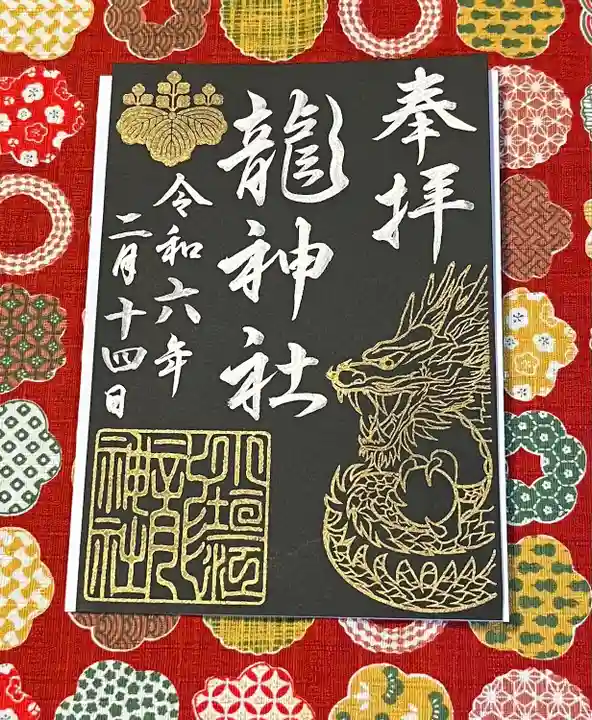 奉拝
龍神社
令和六年
二月十四日